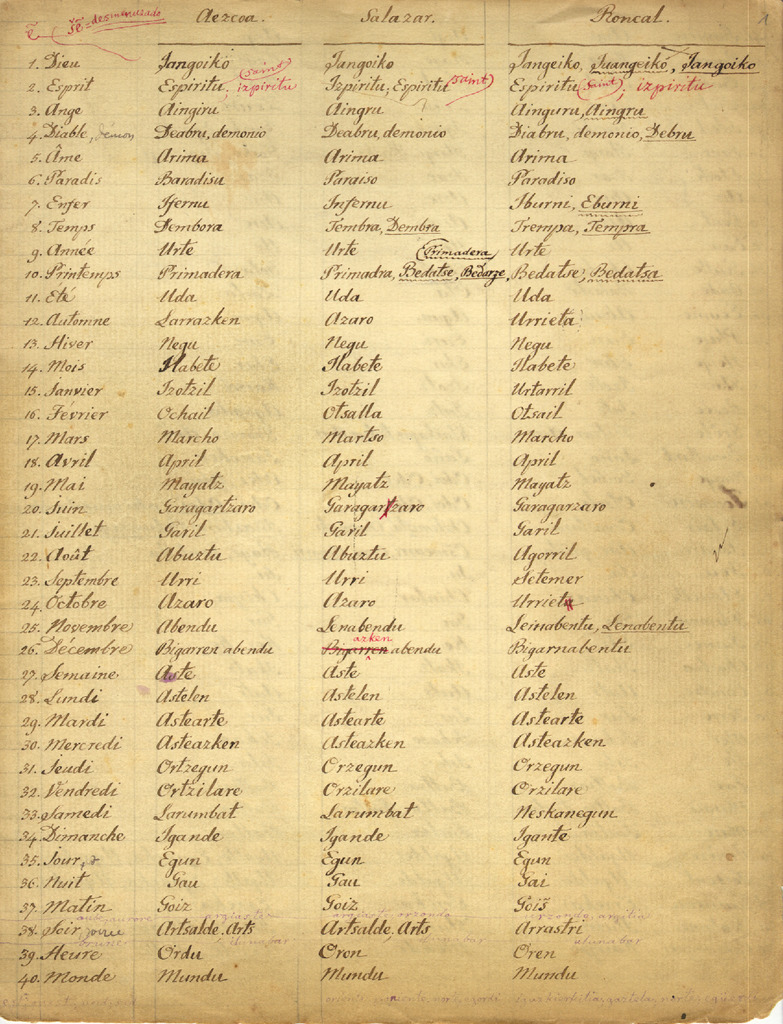 Aezcoa. Salazar. Roncal. 1
1. Dieu Jangoiko Jangoiko Jangeiko, Juangeikó, Jangoiko
2. Esprit Espiritu (saint), izpiritu Izpiritu; Espiritu (saint) Espiritu (saint), izpiritu
3. Ange Aingiru Aingru Ainguru, Aingru
4. Diable, démon Deabru, demonio Deabru, demonio Diabru, demonio, Debru
5. Âme Arima Arima Arima
6. Paradis Baradisu Paraiso Paradiso
7. Enfer Ifernu Infernu Iburni, Eburni
8. Temps Dembora Tembra, Dembra Trempa, Tempra
9. Année Urte Urte Urte
(Primadera)
10. Printemps Primadera Primadra, Bedatse, Bedarze, Bedatse, Bedatsa
11. Eté Uda Uda Uda
12. Automne Larrazken Azaro Urrieta
13. Hiver Negu Negu Negu
14. Mois Ilabete Ilabete Ilabete
15. Janvier Izotzil Izotzil Urtarril
16. Fevrier Ochail Otsalla Otsail
17. Mars Marcho Martso Marcho
18. Avril April April April
19. Mai Mayatz Mayatz Mayatz
20. Juin Garagartzaro Garagartzaro Garagarzaro
21. Juillet Garil Garil Garil
22. Août Abuztu Abuztu Agorril
23. Septembre Urri Urri Setemer
24. Octobre Azaro Azaro Urrieta
25. Novembre Abendu Lenabendu Leinabentu, Lenabentu
azken
26. Décembre Bigarren abendu Bigarren abendu Bigarnabentu
27. Semaine Aste Aste Aste
28. Lundi Astelen Astelen Astelen
29. Mardi Astearte Astearte Astearte
30. Mercredi Asteazken Asteazken Asteazken
31. Jeudi Ortzegun Orzegun Orzegun
32. Vendredi Ortzilare Orzilare Orzilare
33. Samedi Larumbat Larumbat Neskanegun
34. Dimanche Igande Igande Igante
35. Jour Egun Egun Egun
36. Nuit Gau Gau Gai
37. Matin Goiz Goiz Goiš
38. Soir Artsalde, Arts Artsalde, Arts Arrastri
ilunabar ilunabar
39. Heure Ordu Oron Oren
40. Monde Mundu Mundu Mundu